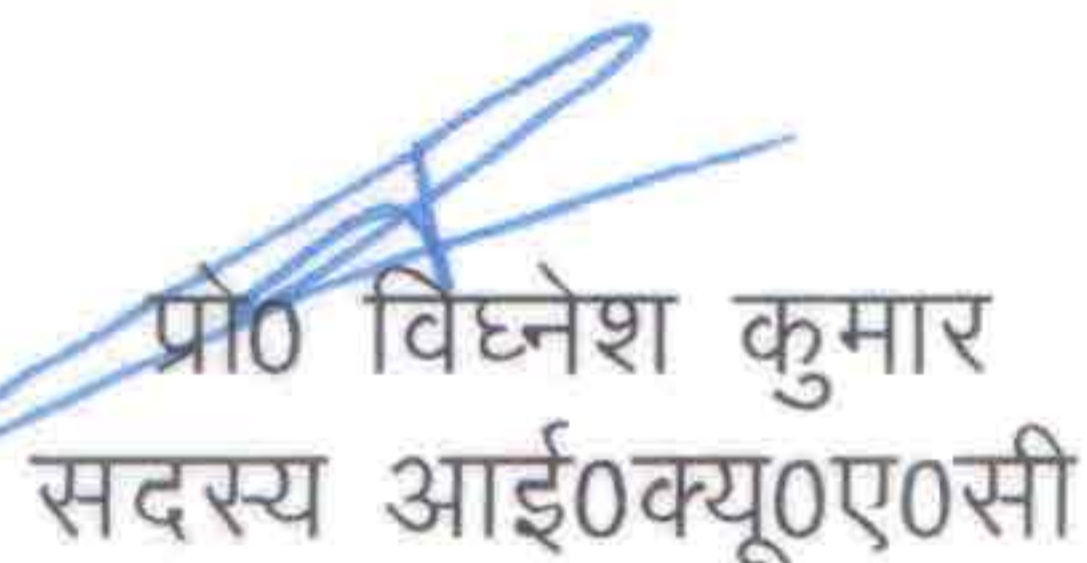 प्रो0 विघ्नेश कुमार
सदस्य आई0क्यू0ए0सी